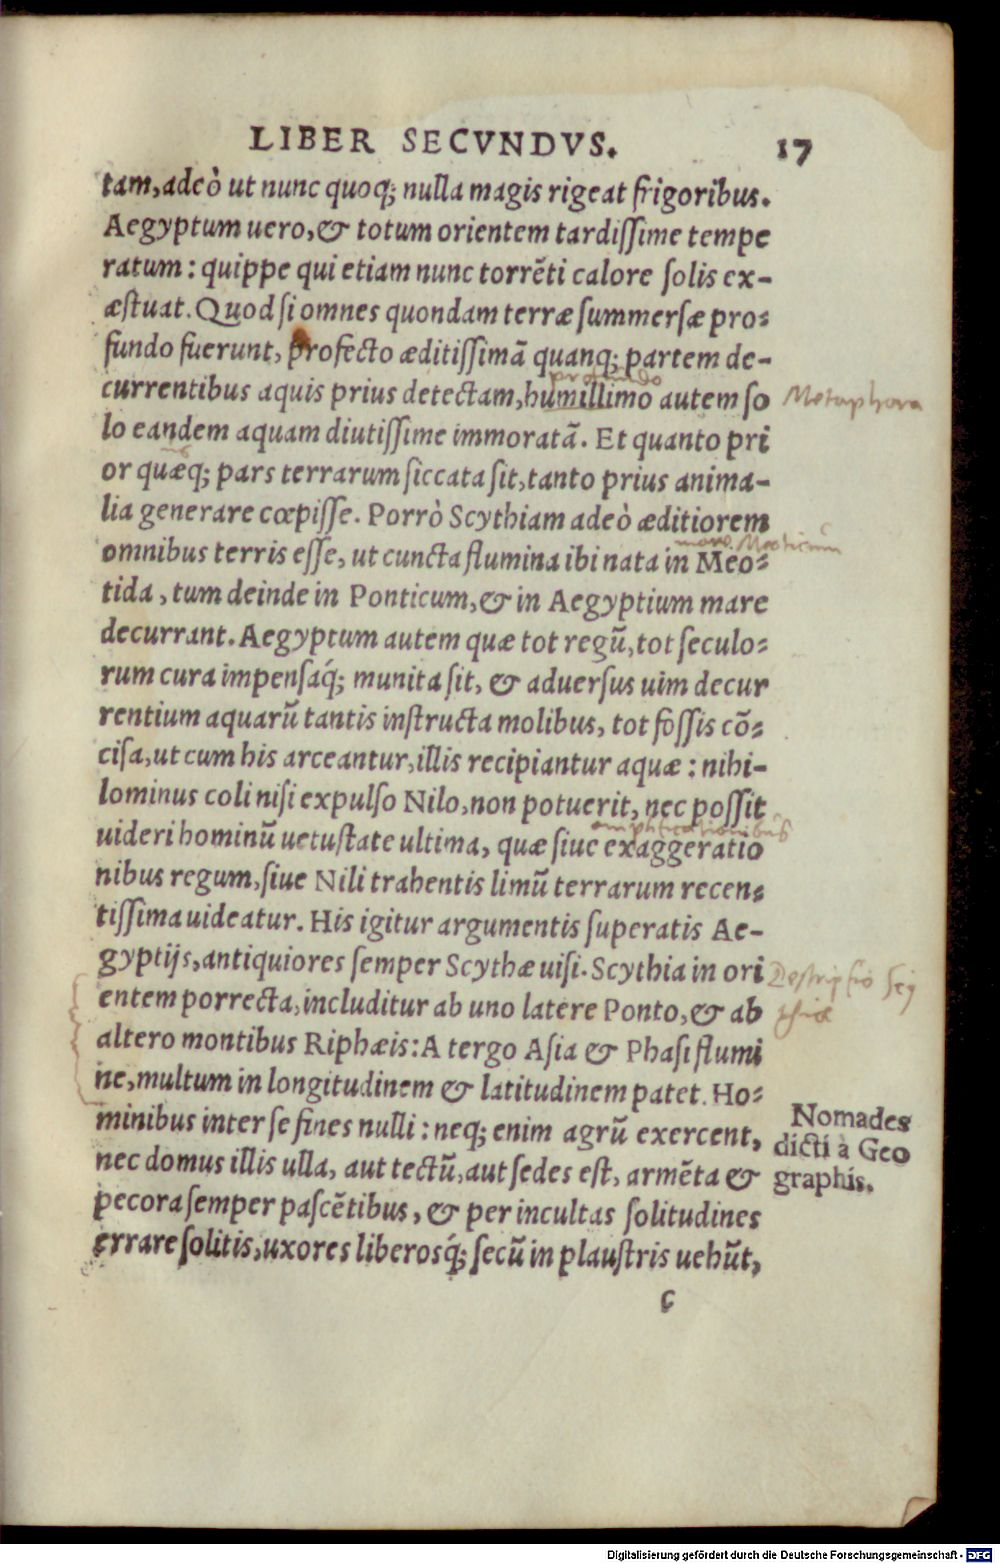 LIBER SECVNDVS. 17
tam, adeò ut nunc quoq; nulla magis rigeat frigoribus.
Aegyptum uero, & totum orientem tardiſſime tempe
ratum: quippe qui etiam nunc torrẽti calore ſolis ex-
æſtuat. Quod ſi omnes quondam terræ ſummerſæ pro-
fundo fuerunt, profecto æditiſſimã quanq; partem de-
profundo
currentibus aquis prius detectam, humillimo autem ſo
Metaphora
lo eandem aquam diutiſſime immoratã. Et quanto pri
or quæq; pars terrarum ſiccata ſit, tanto prius anima-
lia generare cœpiſſe. Porrò Scythiam adeò æditiorem
mare Meoticum
omnibus terris eſſe, ut cuncta flumina ibi nata in Meo-
tida, tum deinde in Ponticum, & in Aegyptium mare
decurrant. Aegyptum autem quæ tot regũ, tot ſeculo-
rum cura impenſaq́; munita ſit, & aduerſus uim decur
rentium aquarũ tantis inſtructa molibus, tot foſſis cõ-
ciſa, ut cum his arceantur, illis recipiantur aquæ: nihi-
lominus coli niſi expulſo Nilo, non potuerit, nec poſſit
amplificationibus
uideri hominũ uetuſtate ultima, quæ ſiue exaggeratio
nibus regum, ſiue Nili trahentis limũ terrarum recen-
tiſſima uideatur. His igitur argumentis ſuperatis Ae-
gyptijs, antiquiores ſemper Scythæ uiſi. Scythia in ori
Deſcriptio Scy
thiæ
entem porrecta, includitur ab uno latere Ponto, & ab
altero montibus Riphæis: A tergo Aſia & Phaſi flumi
ne, multum in longitudinem & latitudinem patet. Ho-
minibus inter ſe fines nulli: neq; enim agrũ exercent,
nec domus illis ulla, aut tectũ, aut ſedes eſt, armẽta &
pecora ſemper paſcẽtibus, & per incultas ſolitudines
errare ſolitis, uxores liberosq́; ſecũ in plauſtris uehũt,
Nomades
dicti à Geo
graphis.
c
Digitalisierung gefördert durch die Deutsche Forschungsgemeinschaft - DFG